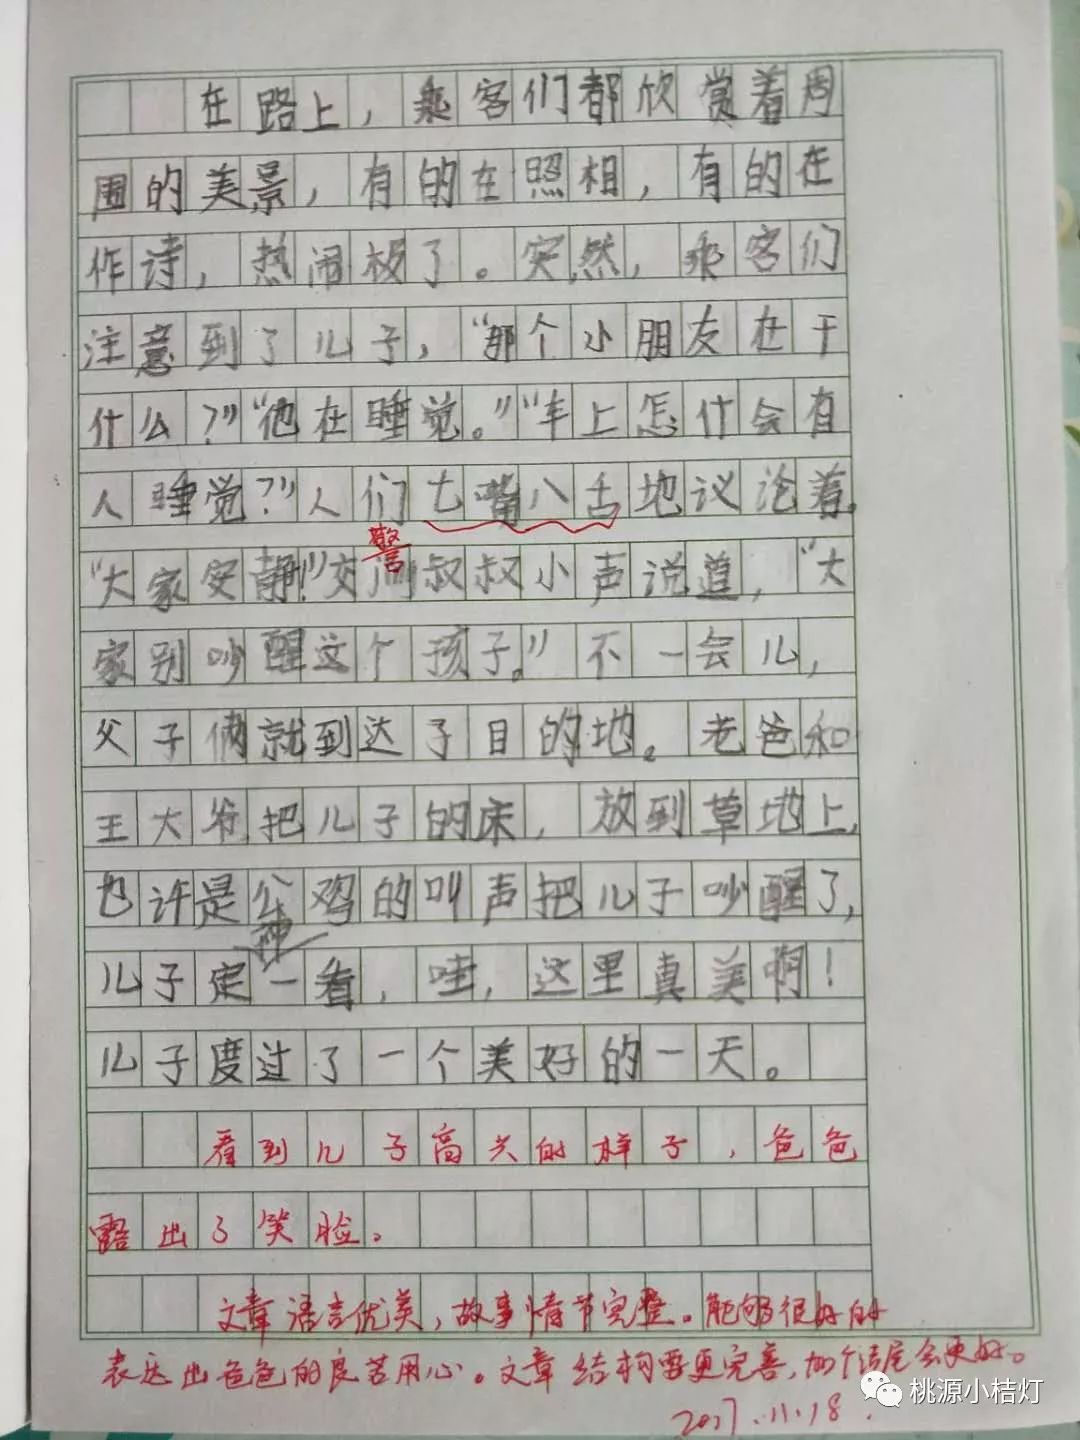 在路上，乘客们都欣赏着周
围的美景，有的在照相，有的在
作诗，热闹极了。突然，乘客们
注意到了儿子，“那个小朋友在干
什么？”“他在睡觉。”“车上怎什会有
人睡觉？”人们七嘴八舌地议论着。
警
“大家安静！”交 叔叔小声说道，“大
家别吵醒这个孩子。”不一会儿，
父子俩就到达了目的地。老爸和
王大爷把儿子的床，放到草地上，
也许是公鸡的叫声把儿子吵醒了，
神
儿子定一看，哇，这里真美啊！
儿子度过了一个美好的一天。
看到儿子高兴的样子，爸爸
露出了笑脸。
文章语言优美，故事情节完整。能够很好的
表达出爸爸的良苦用心。文章结构要更完善，加个结尾会更好。
2017.11.18.
桃源小桔灯